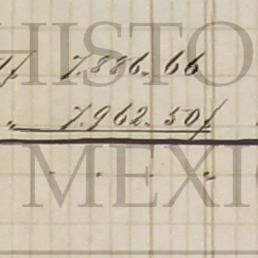 HISTO
7.886.66
„ 7.962.50
MEXI